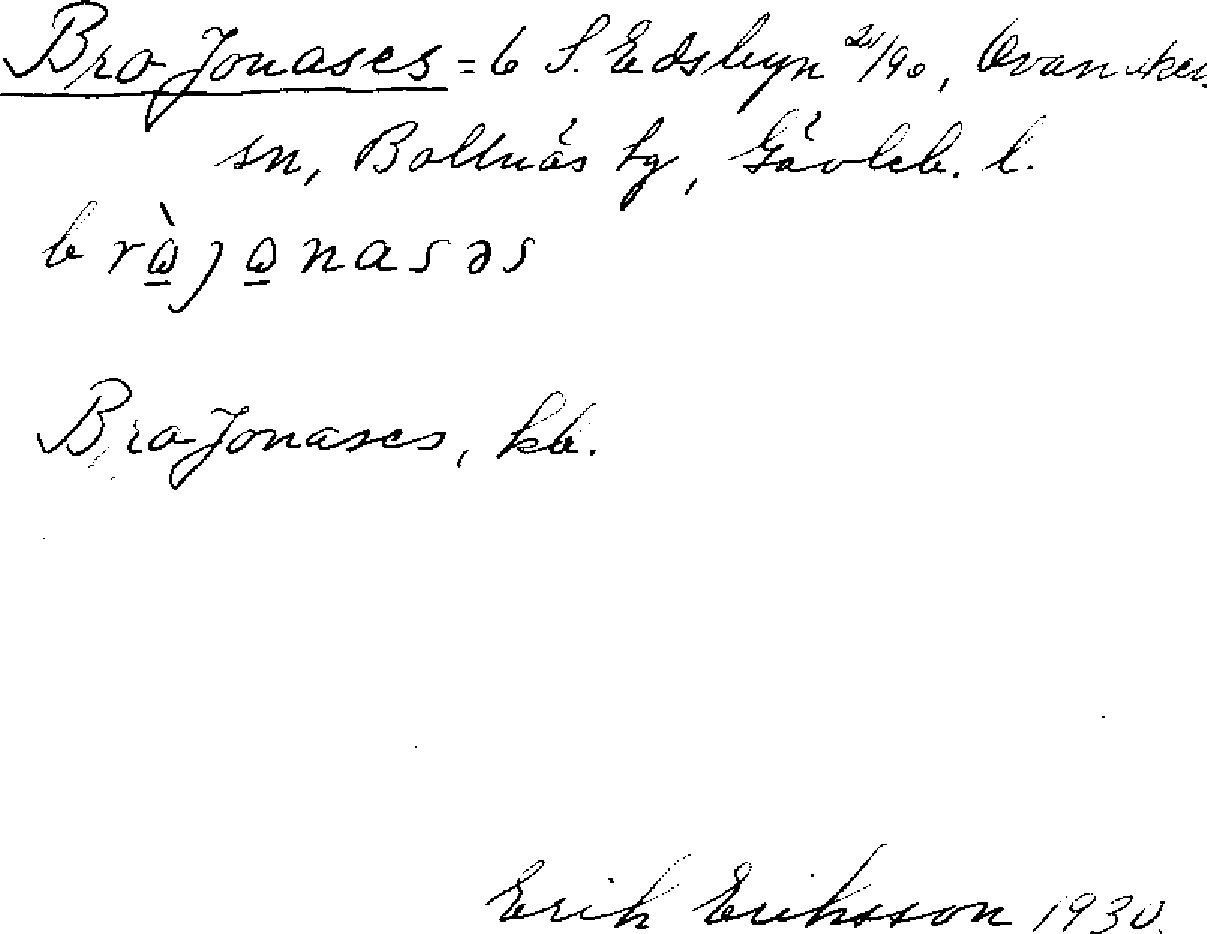 Bro Jonases = 6 S. Edsbyn 21/90, Ovanåkers
sn, Bollnäs tg, Gävleb. l.
brὼ̲jω̲nasəs
Bro Jonases, kb.
Erik Eriksson 1930.